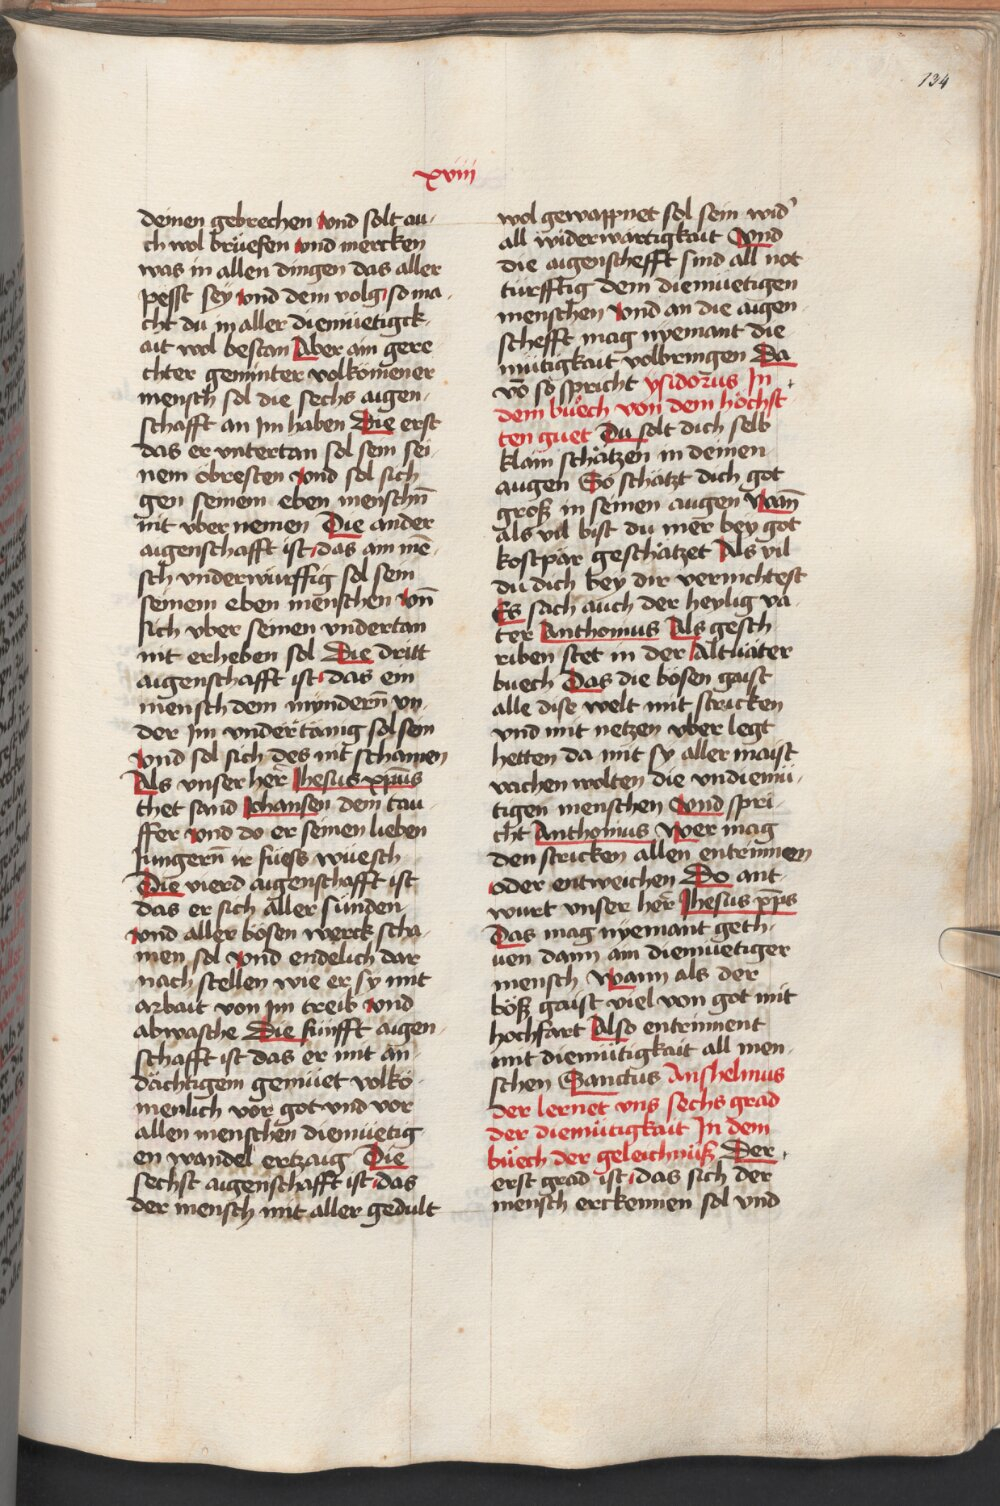 134
xviii
deinen gebrechen vnd solt au-
ch wol brüefen vnd mercken
was in allen dingen das aller
pesst sey vnd dem volg so ma-
cht du in aller diemüetigk-
ait wol bestan Aber ain gere
chter geminter volkomener
mensch sol die sechs aigen-
schafft an Im haben Die erst
das er vntertan sol sein sei-
nem obresten vnd sol sich
gen seinem eben menschn̄
nit vber nemen Die ander
aigenschafft ist das ain mē-
sch vnderwurffig sol sein
seinem eben menschen vn̄
sich vber seinen vndertan
nit erheben sol Die dritt
aigenschafft ist das ein
mensch dem myndern̄ vn-
der Im vndertänig sol sein
vnd sol sich des nit schamen
Als vnser her Jhesus xpūs
thet sand Johansen dem tau-
ffer vnd do er seinen lieben
Jungern̄ ir füess wüesch
Die vierd aigenschafft ist
das er sich aller sünden
vnd aller bösen werck scha-
men sol vnd endelich dar
nach stellen wie er sy mit
arbait von Im treib vnd
abwasche Die fünfft aigen-
schafft ist das er mit an-
dächtigem gemüet volko-
menlich vor got vnd vor
allen menschen diemüetig
en wandel ertzaig Die
sechst aigenschafft ist das
der mensch mit aller gedult
wol gewappnet sol sein wid'
all widerwärtigkait Vnd
die aigenschefft sind all not
türfftig dem diemüetigen
menschen Vnd an die aigen-
schefft mag nyemant die
mütigkait volbringen Da
vō so spricht ysidorus In
dem buech von dem höchst
ten guet Du solt dich selb
klain schätzen in deinen
augen So schätzt dich got
groß in seinen augen Wan̄
als vil bist du mer bey got
kostpär geschätzet Als vil
du dich bey dir vernichtest
Es sach auch der heylig va-
ter Anthonius Als gesch
riben stet in der Altväter
buech Das die bösen gaist
alle dise welt mit stricken
vnd mit netzen vber legt
hetten da mit sy aller maist
vachen wolten die vndiemü-
tigen menschen Vnd spri-
cht Anthonius Wer mag
den stricken allen entrinnen
oder entweichen Do ant-
wurt vnser her Jhesus xp̄s
Das mag nyemant geth-
uen dann ain diemüetiger
mensch Wann als der
böß gaist viel von got mit
hochfart Also entrinnent
mit diemütigkait all men-
schen Sanctus Anshelmus
der lernet vns sechs grad
der diemütigkait In dem
büech der geleichnüß Der
erst grad ist das sich der
mensch erckennen sol vnd